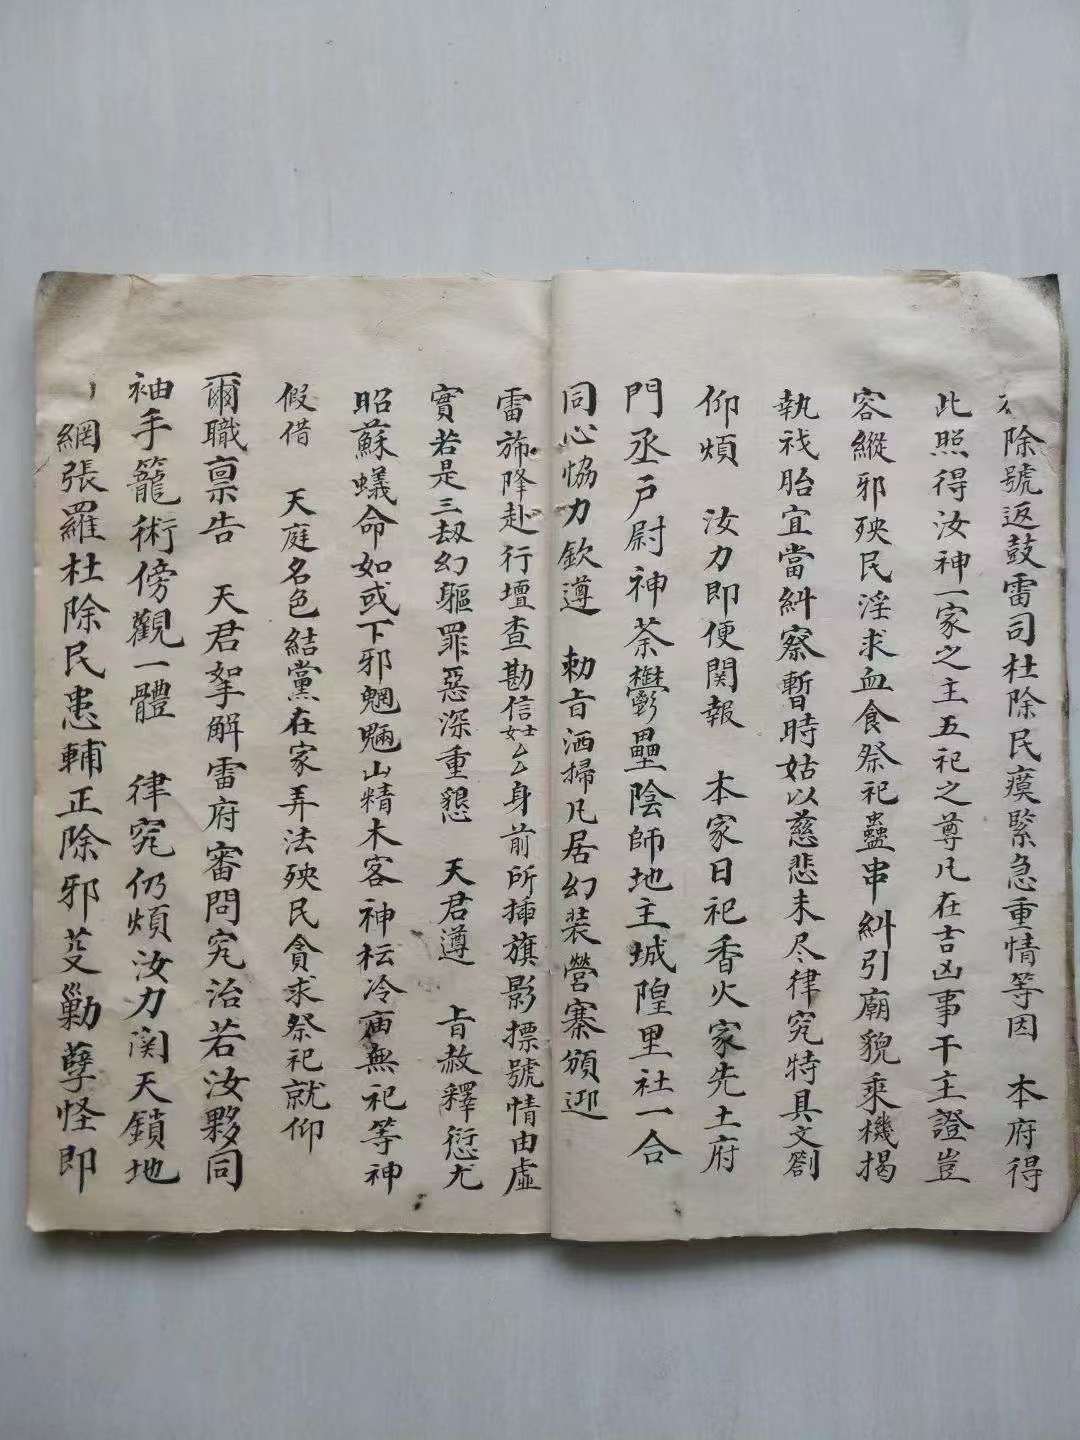 除號返鼓雷司杜除民瘼緊急重情等因　本府得
此照得汝神一家之主五祀之尊凡在吉凶事干主證豈
容縱邪殃民淫求血食祭祀蠱串糾引廟貌乘機揭
執𥘵胎宜當糾察暫時姑以慈悲未尽律究特具文劄
仰煩　汝力即便関報　本家日祀香火家先土府
門丞户尉神荼欎壘陰師地主城隍里社一合
同心恊力欽遵　勅㫖洒掃凡居幻装營寨頒迎
雷斾降赴行壇查勘信士女厶身前所揷旗影摽號情由虛
實若是三刼幻軀罪惡深重懇　天君遵　㫖赦釋愆尤
昭蘇蟻命如或下邪魍魎山精木客神枟冷庙無祀等神
假借　天庭名色結黨在家弄法殃民貪求祭祀就仰
爾職禀告　天君拏解雷府審問究治若汝夥同
袖手籠術傍觀一體　律究仍煩汝力関天鎖地
網張羅杜除民患輔正除邪芟勦孽怪即